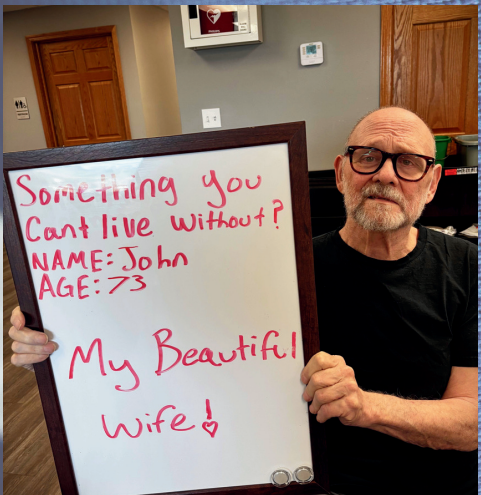 Something you
Cant live without?
NAME: John
AGE: 73
My Beautiful
wife!